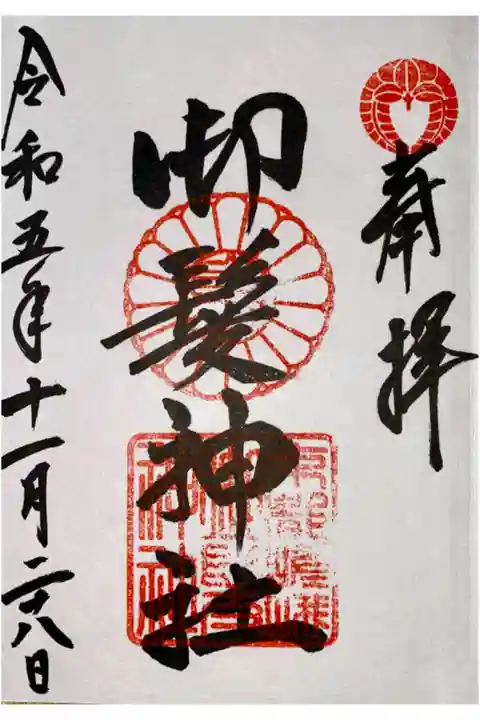 奉拝
御髪神社
令和五年十一月二十八日